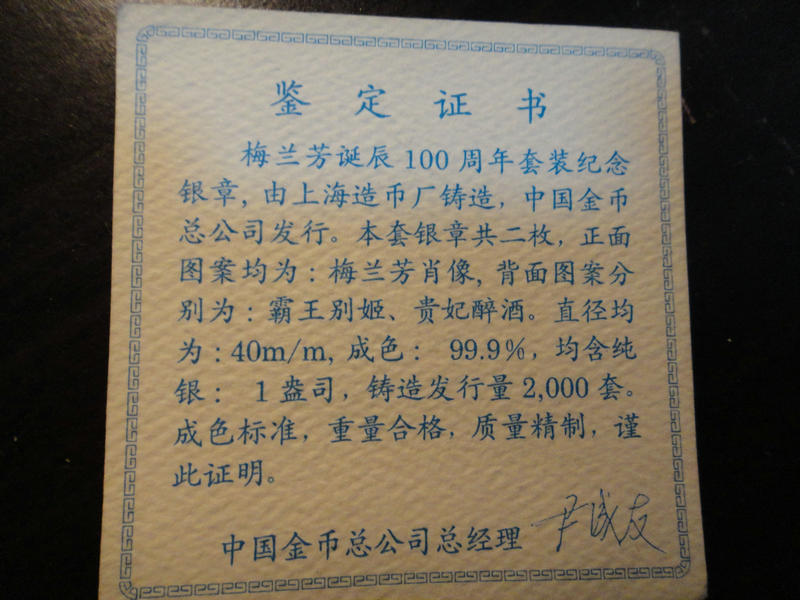 鉴定证书
梅兰芳诞辰100周年套装纪念
银章,由上海造币厂铸造,中国金币
总公司发行。本套银章共二枚,正面
图案均为:梅兰芳肖像,背面图案分
别为:霸王别姬、贵妃醉酒。直径均
为:40m/m,成色: 99.9%,均含纯
银: 1盎司,铸造发行量2,000套。
成色标准,重量合格,质量精制,谨
此证明。
中国金币总公司总经理